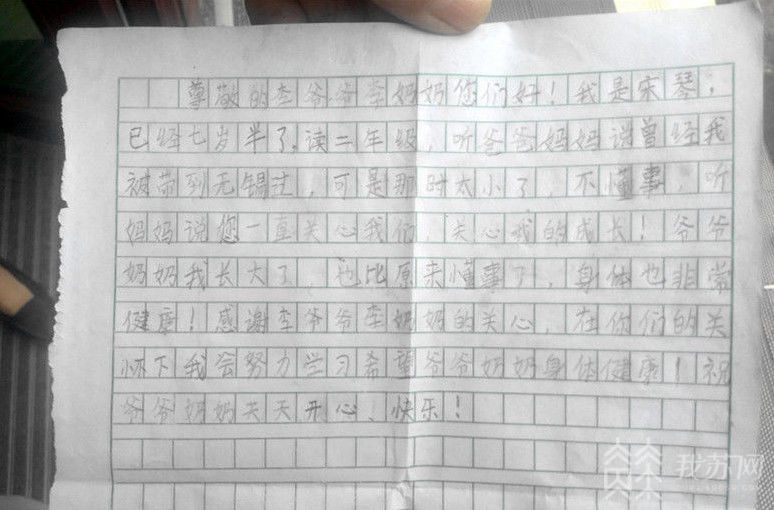 尊敬的李爷爷李妈奶您们好！我是宋琴，
已经七岁半了，读二年级，听爸爸妈妈说曾经我
被带到无锡过，可是那时太小了，不懂事，听
妈妈说您一直关心我们，关心我的成长！爷爷
奶奶我长大了，也比原来懂事了，身体也非常
健康！感谢李爷爷李奶奶的关心，在你们的关
怀下我会努力学习希望爷爷奶奶身体健康！祝
爷爷奶奶天天开心、快乐！
我苏网